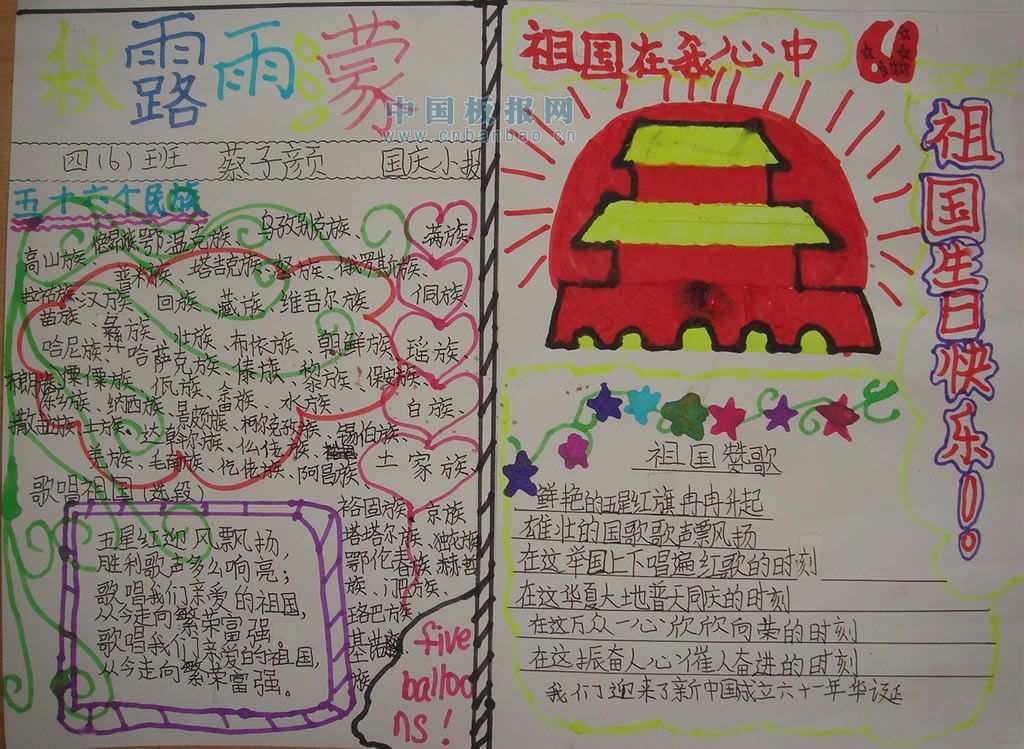 秋露雨濛
中国板报网
www.cnbanbao.cn
四(6)班 蔡子颜 国庆小报
五十六个民族
乌孜别克族、满族、
高山族 鄂温克族、
普米族、塔吉克族、怒族、俄罗斯族、
侗族、
汉族、回族、藏族、维吾尔族
苗族、彝族、壮族、布依族、朝鲜族、瑶族、
哈尼族、哈萨克族、傣族、黎族、保安族、
傈僳族、佤族、畲族、水族、白族、
东乡族、纳西族、景颇族、柯尔克孜族、
撒拉族、土族、达斡尔族、仫佬族、锡伯族、
羌族、毛南族、仡佬族、阿昌族、土家族、
歌唱祖国(选段)
五星红迎风飘扬,
胜利歌声多么响亮;
歌唱我们亲爱的祖国,
从今走向繁荣富强。
歌唱我们亲爱的祖国,
从今走向繁荣富强。
裕固族、京族、
塔塔尔族、独龙族
鄂伦春族、赫哲
族、门巴族、
珞巴族、
基诺
族
five
balloo
ns!
祖国在我心中
祖国生日快乐!。
祖国赞歌
鲜艳的五星红旗冉冉升起
雄壮的国歌歌声飘风扬
在这举国上下唱遍红歌的时刻
在这华夏大地普天同庆的时刻
在这万众一心欣欣向荣的时刻
在这振奋人心催人奋进的时刻
我们迎来了新中国成立六十一年华诞